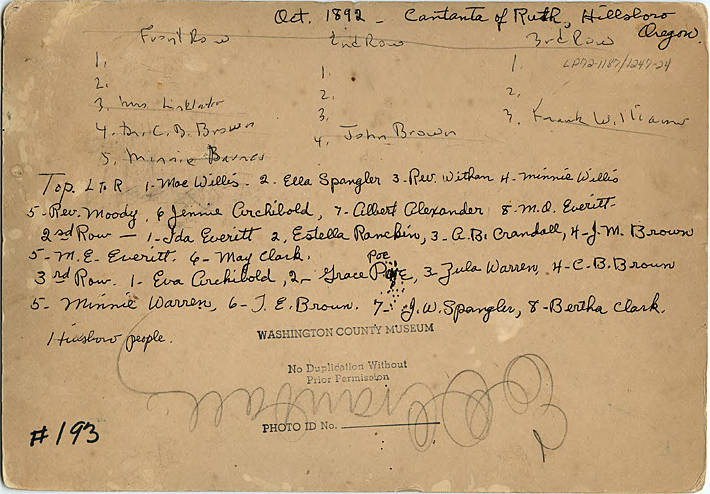 Oct. 1892 - Cantanta of Ruth, Hillsboro
Oregon.
Front Row 2nd Row 3rd Row
LP72-1187/1247-24
1. 1. 1.
2. 2. 2.
3. Mrs Linklater 3. 3. Frank Williams
4. Dr. C. B. Brown 4. John Brown
5. Minnie Barnes
Top. L to R. 1-Mae Willis. 2. Ella Spangler 3-Rev. Withan 4-Minnie Willis
5-Rev. Moody, 6 Jennie Archibold, 7-Albert Alexander 8-M.O. Everitt
2nd Row - 1-Ida Everitt 2, Estella Ranckin, 3-A.B. Crandall, 4-J.M. Brown
5-M.E. Everitt. 6-May Clark.
3rd Row. 1-Eva Archibold, 2-Grace Poe, 3-Zula Warren, 4-C.B. Brown
5-Minnie Warren, 6-T.E. Brown. 7-J.W. Spangler, 8-Bertha Clark.
Hillsboro people.
WASHINGTON COUNTY MUSEUM
No Duplication Without
Prior Permission
Crandall
PHOTO ID No.
#193